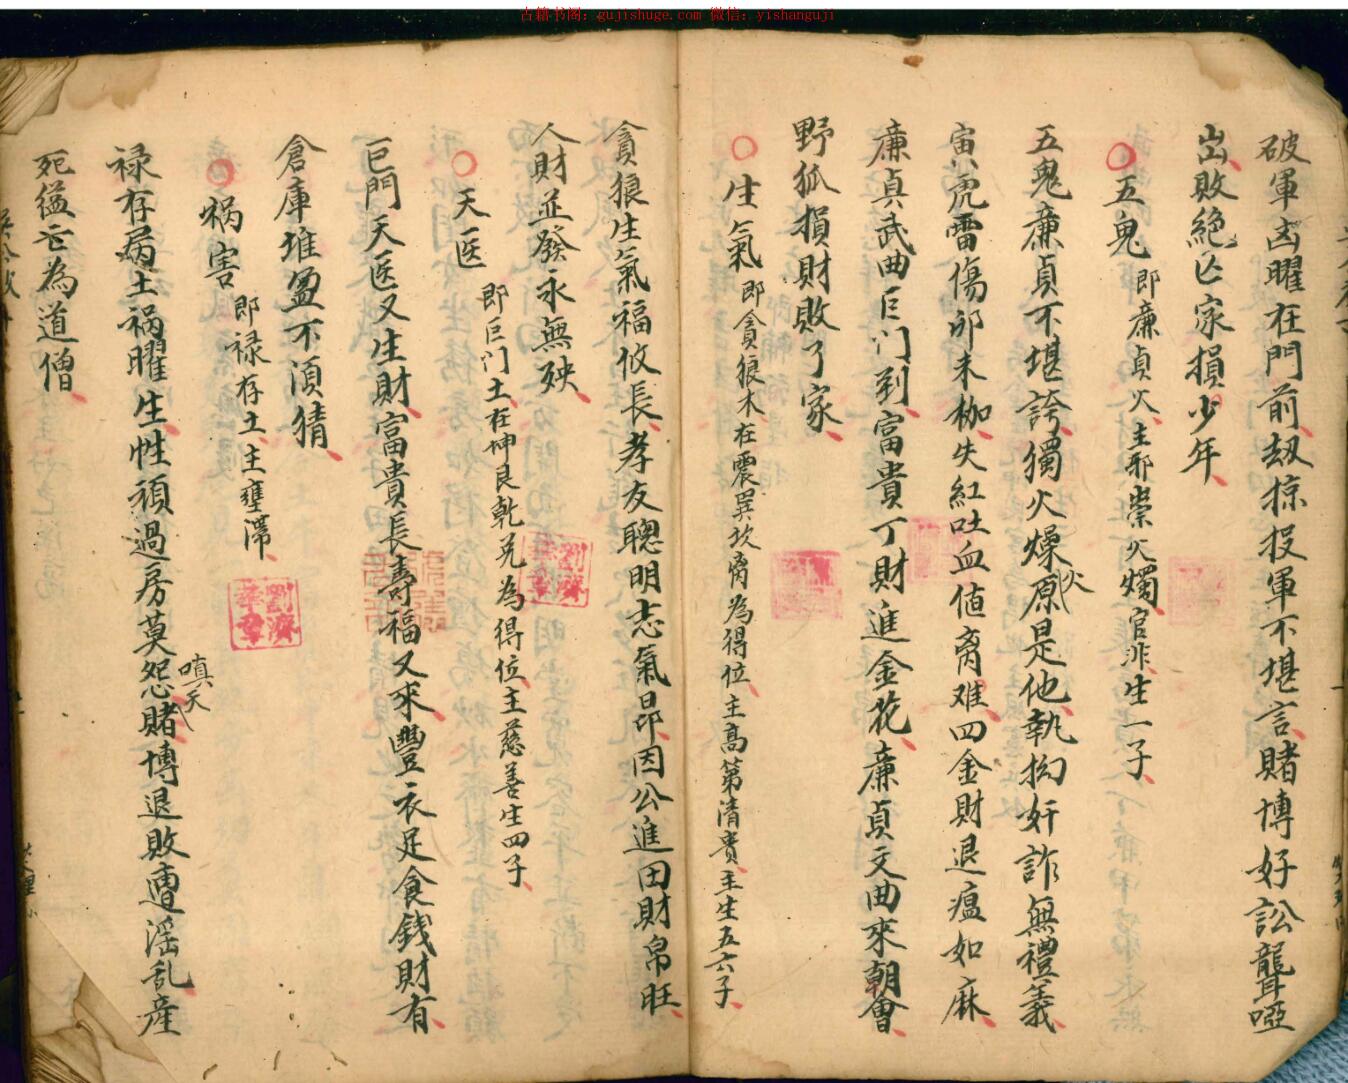 古籍书阁：gujishuge.com 微信：yishanguji
破軍凶曜在門前劫掠投軍不堪言賭博好訟聾啞
出敗絕亡家損少年
五鬼即廉貞火主邪祟火燭官非生一子
五鬼廉貞不堪誇獨火燥火原是他執拗奸詐無禮義
寅虎雷傷卯未枷失紅吐血值离难四金財退瘟如麻
廉貞武曲巨门到富貴丁財進金花廉貞文曲來朝會
野狐損財敗了家
生氣即貪狼木在震巽坎离為得位主高第清貴主生五六子
貪狼生氣福攸長孝友聰明志氣昂因公進田財帛旺
人財並發永無殃
天医即巨门土在坤艮乾兑為得位主慈善生四子
巨門天医又生財富貴長壽福又來豐衣足食钱財有
倉庫堆盈不須猜
祸害即禄存土主壅滯
禄存病土祸曜生性頑過房莫怨嗔天賭博退敗遭淫乱産
死缢亡為道僧
劉濟華章
劉濟華章